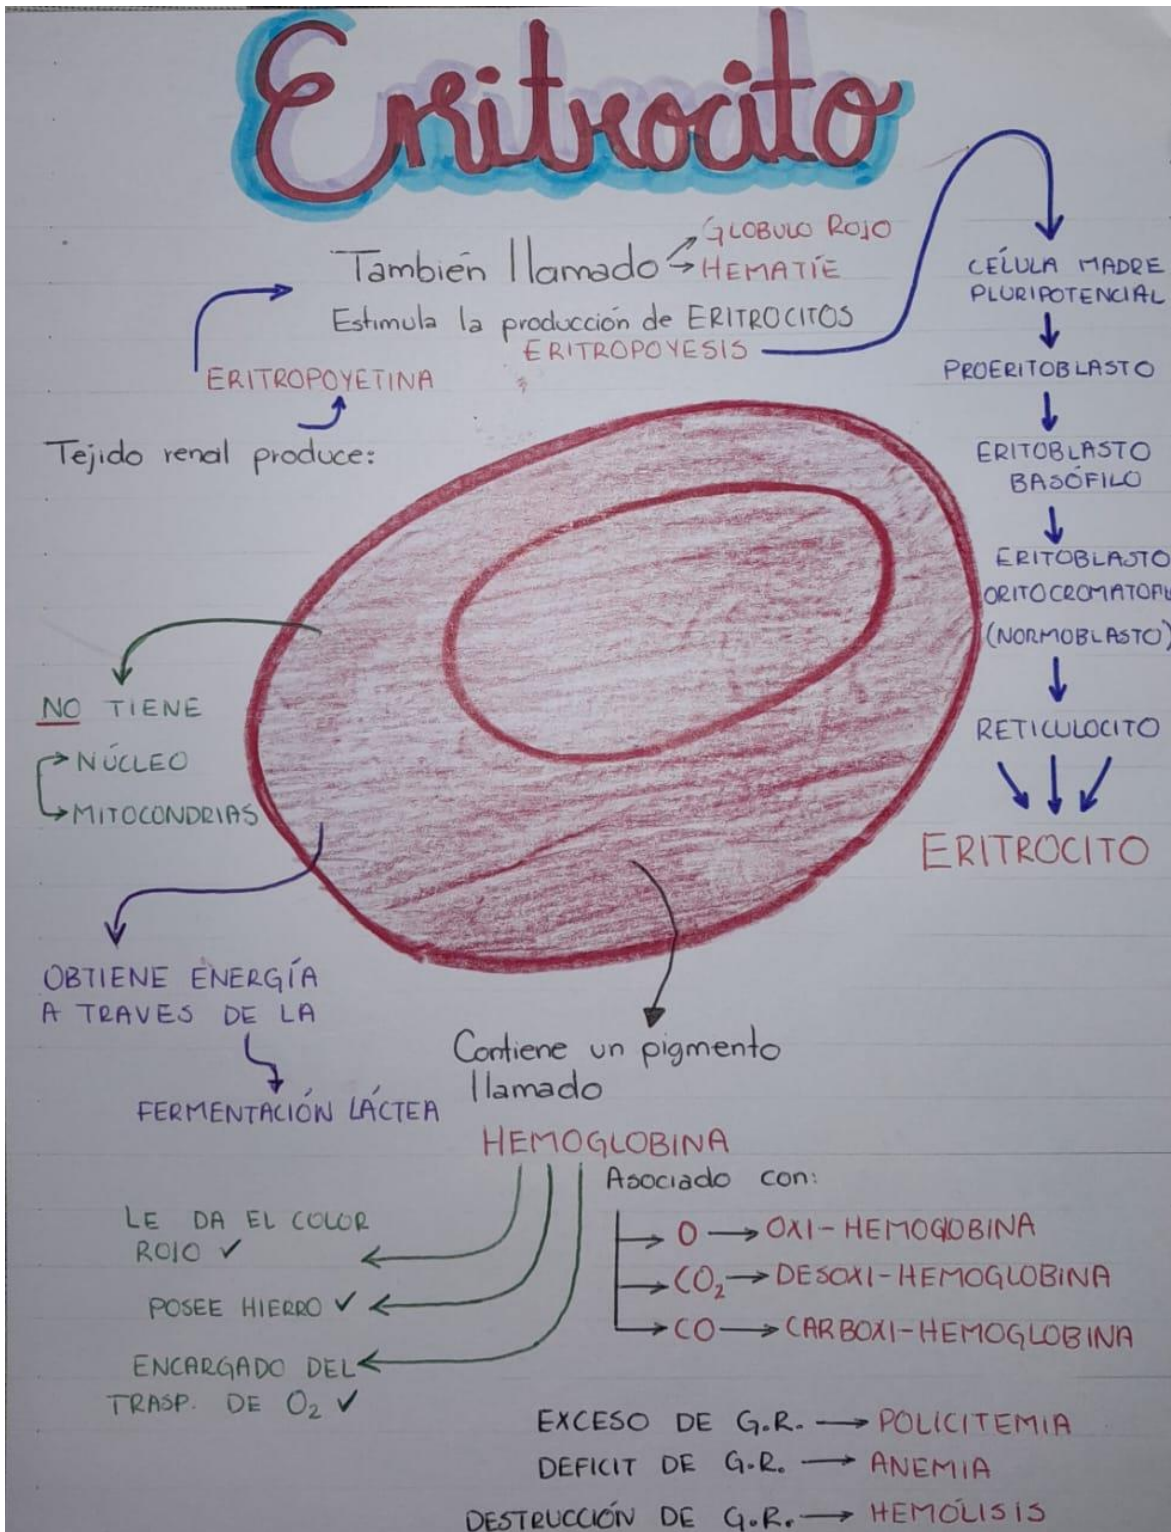 Eritrocito
También llamado
GLOBULO ROJO
HEMATÍE
Estimula la producción de ERITROCITOS
ERITROPOYESIS
ERITROPOYETINA
Tejido renal produce:
CÉLULA MADRE
PLURIPOTENCIAL
PROERITOBLASTO
ERITOBLASTO
BASÓFILO
ERITOBLASTO
(NORMOBLASTO)
RETICULOCITO
ERITROCITO
NO TIENE
NÚCLEO
MITOCONDRIAS
OBTIENE ENERGÍA
A TRAVES DE LA
FERMENTACIÓN LÁCTEA
Contiene un pigmento
llamado
HEMOGLOBINA
LE DA EL COLOR
ROJO ✓
POSEE HIERRO ✓
ENCARGADO DEL
TRASP. DE O₂ ✓
Asociado con:
O → OXI-HEMOGLOBINA
CO₂ → DESOXI-HEMOGLOBINA
CO → CARBOXI-HEMOGLOBINA
EXCESO DE G.R. → POLICITEMIA
DEFICIT DE G.R. → ANEMIA
DESTRUCCIÓN DE G.R. → HEMÓLISIS